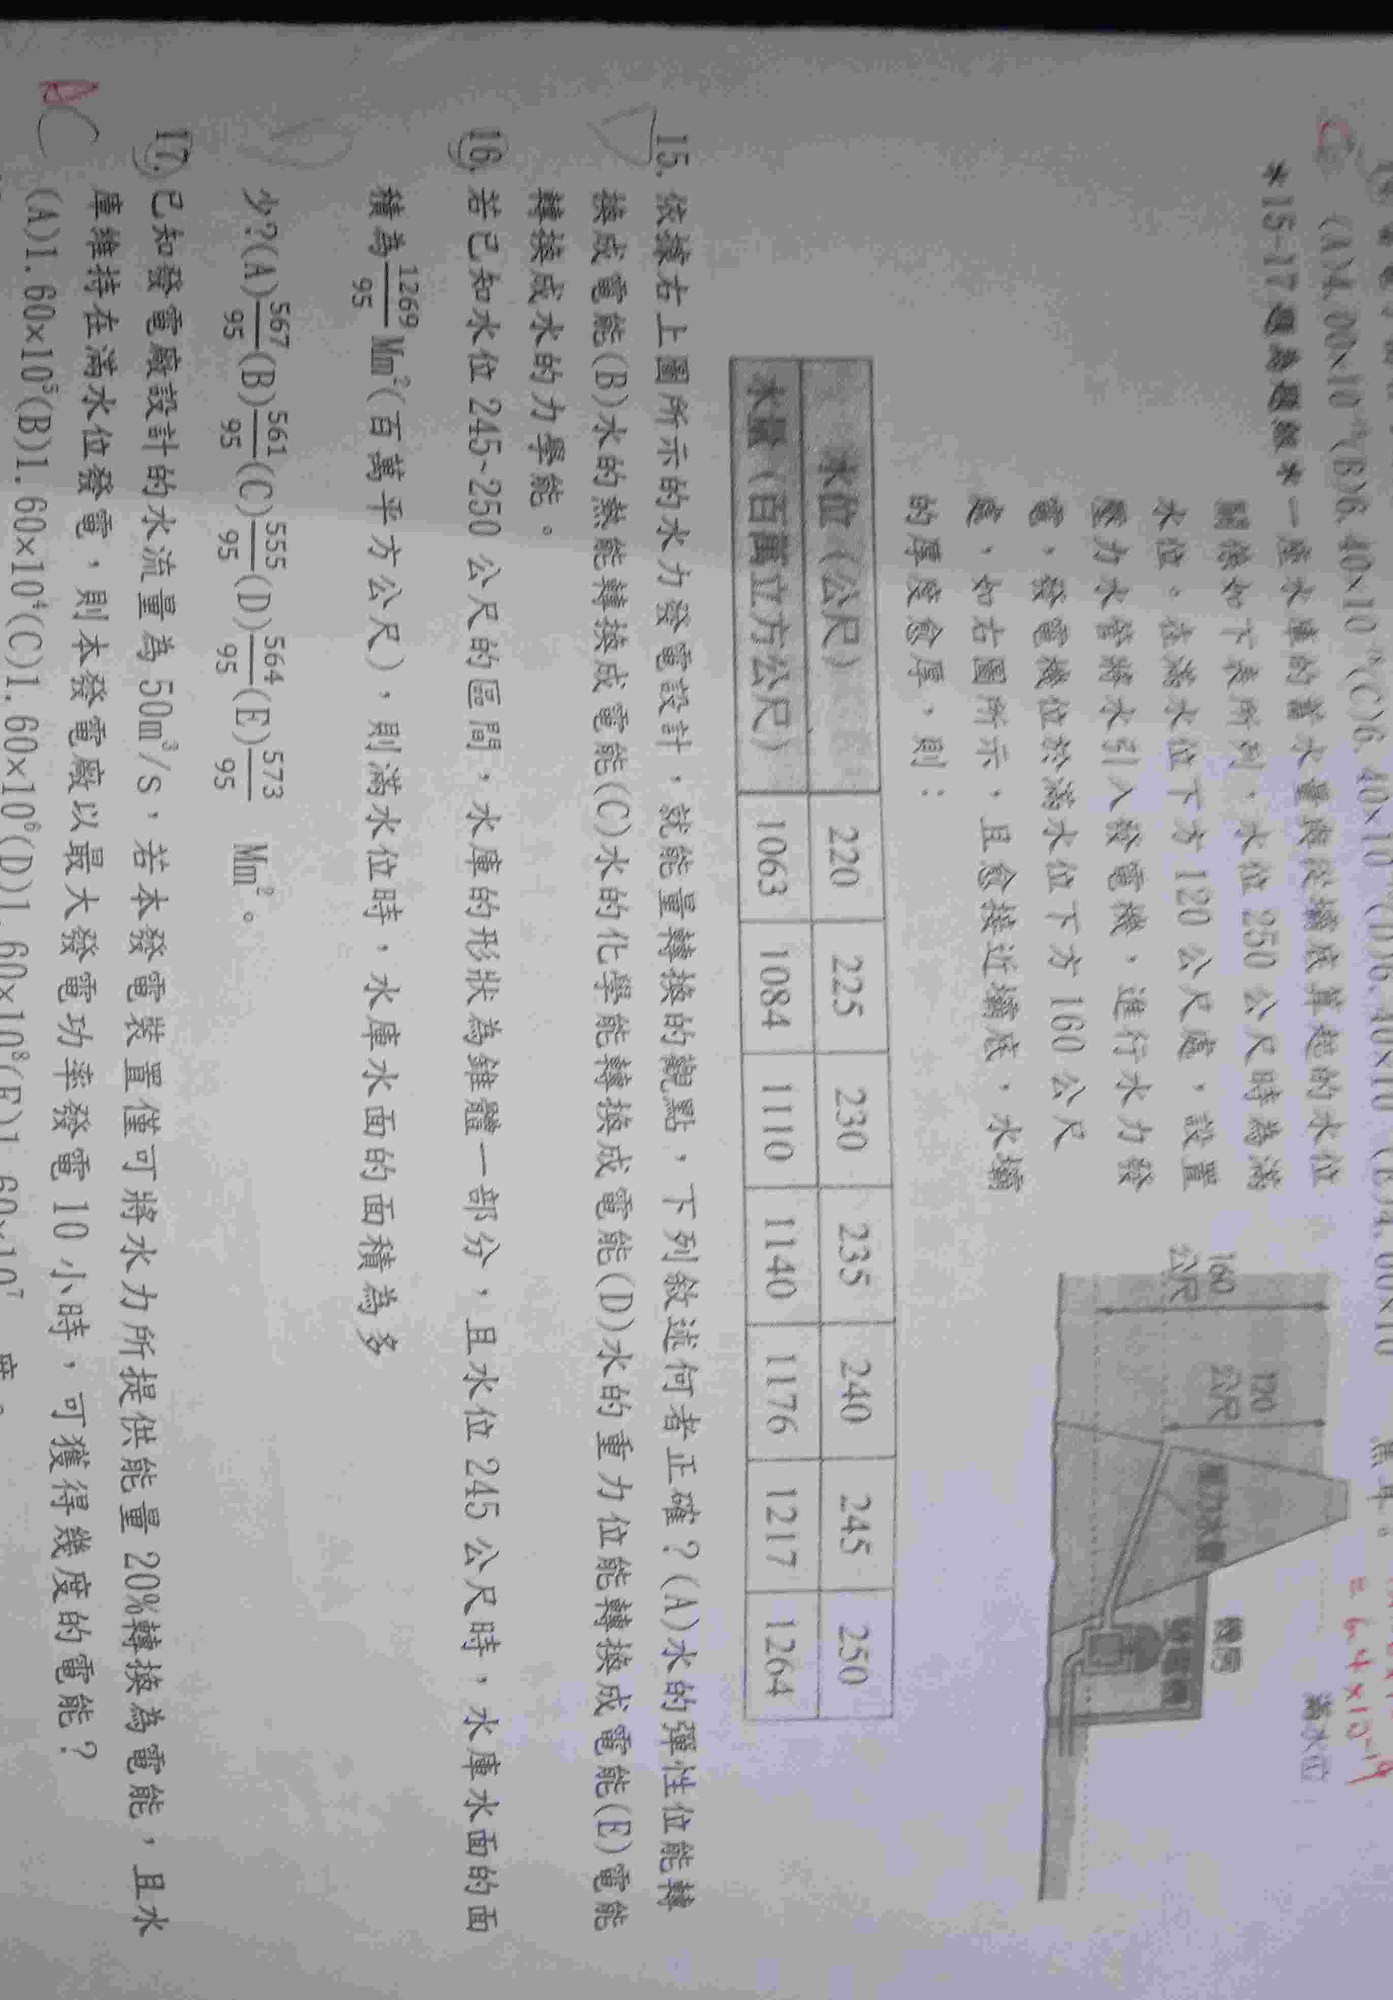 (A)4.00×10 (B)6.40×10 (C)6.40×10 (D)6.40×10 (E)4.00×10 焦耳。
= 6.4×10⁻¹⁹
C
*15-17題為題組*一座水庫的蓄水量與從壩底算起的水位
關係如下表所列,水位 250 公尺時為滿
水位。在滿水位下方 120 公尺處,設置
壓力水管將水引入發電機,進行水力發
電,發電機位於滿水位下方 160 公尺
處,如右圖所示,且愈接近壩底,水壩
的厚度愈厚,則:
滿水位
160
公尺
120
公尺
壓力水管
機房
發電機
水位(公尺) 220 225 230 235 240 245 250
水量(百萬立方公尺) 1063 1084 1110 1140 1176 1217 1264
15. 依據右上圖所示的水力發電設計,就能量轉換的觀點,下列敘述何者正確?(A)水的彈性位能轉
換成電能(B)水的熱能轉換成電能(C)水的化學能轉換成電能(D)水的重力位能轉換成電能(E)電能
轉換成水的力學能。
16. 若已知水位 245~250 公尺的區間,水庫的形狀為錐體一部分,且水位 245 公尺時,水庫水面的面
積為1269/95 Mm²(百萬平方公尺),則滿水位時,水庫水面的面積為多
少?(A)567/95(B)561/95(C)555/95(D)564/95(E)573/95 Mm²。
17. 已知發電廠設計的水流量為 50m³/s,若本發電裝置僅可將水力所提供能量 20%轉換為電能,且水
庫維持在滿水位發電,則本發電廠以最大發電功率發電 10 小時,可獲得幾度的電能?
(A)1.60×10⁵(B)1.60×10⁴(C)1.60×10⁶(D)1.60×10⁸(E)1.60×10⁷ 度。